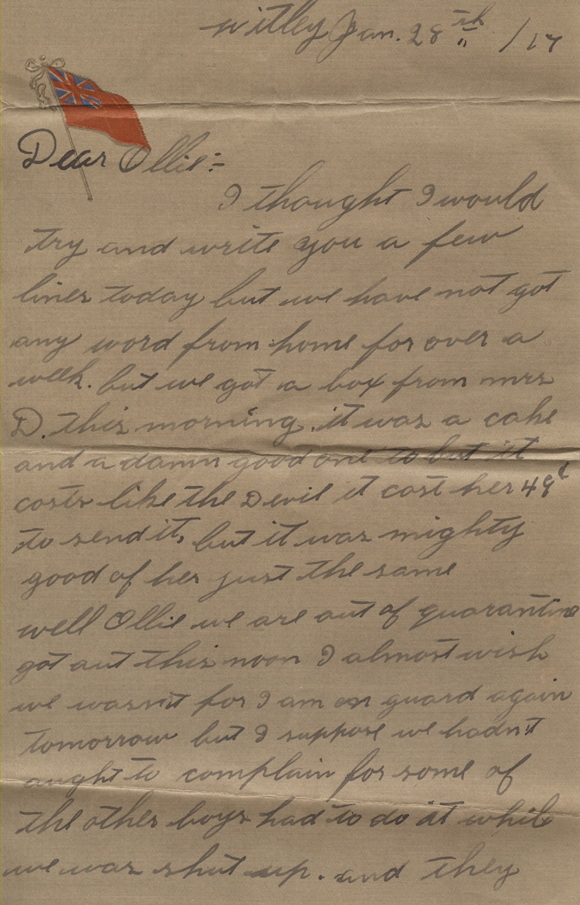 Witley Jan. 28th /17
Dear Ollie:-
I thought I would
try and write you a few
lines today but we have not got
any word from home for over a
week. but we got a box from mrs
D. this morning. it was a cake
and a damn good one to but it
costs like the Devil it cost her 48¢
to send it, but it was mighty
good of her just the same
well Ollie we are out of quarantine
got out this noon I almost wish
we wasn't for I am on guard again
tomorrow but I suppose we hadn't
aught to complain for some of
the other boys had to do it while
we was shut up. and they